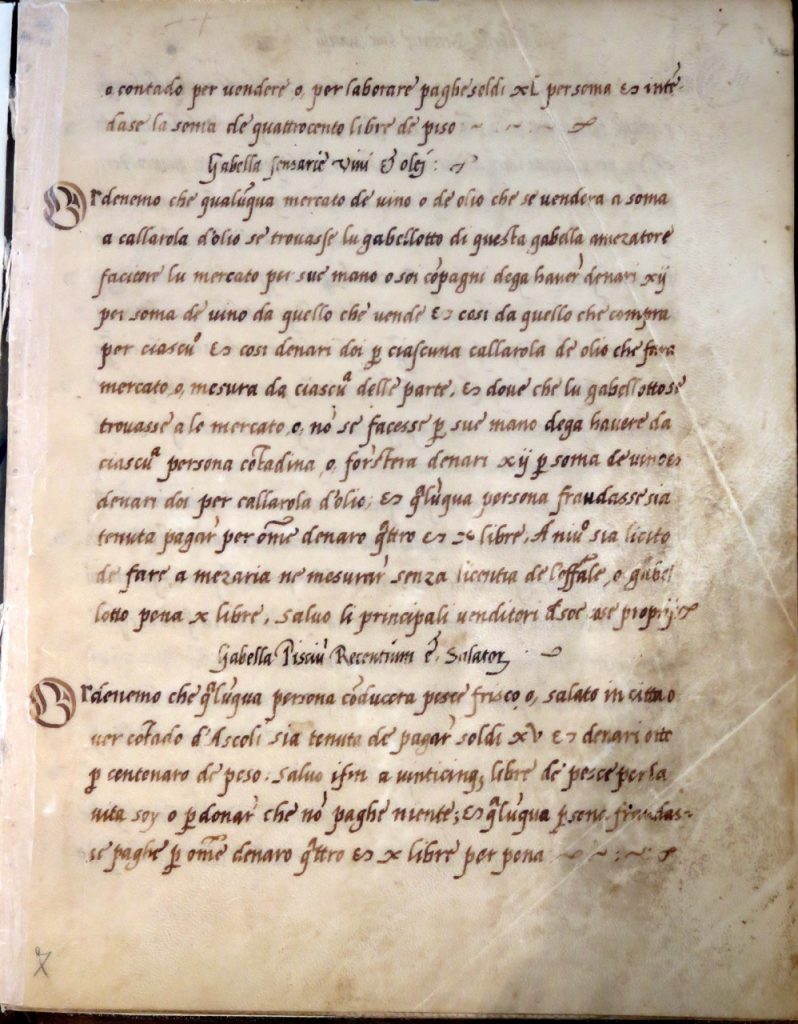 o contado per vendere o, per laborare paghe soldi xL per soma & intē-
dase la soma de quattrocento libre de piso
Gabella sensarie vini & olej:
Ordenemo che qualūqua mercato de vino o de olio che se vendera a soma
a callarola d'olio se trouasse lu gabellotto di questa gabella amezatore
facitore lu mercato per sue mano o soi cōpagni dega hauer̄ denari xij
per soma de vino da quello che vende & cosi da quello che compra
per ciascuº & cosi denari doi p̄ ciascuna callarola de olio che fara
mercato, o, mesura da ciascuª delle parte, & dove che lu gabellotto se
trouasse a lo mercato, o, nō se facesse p̄ sue mano dega hauere da
ciascuª persona cōtadina, o, forstera denari xij p̄ soma de vino &
denari doi per callarola d'olio; & q̄lūqua persona fraudasse sia
tenuta pagar̄ per om̄e denaro q̄ttro & x libre, A niuº sia licito
de fare a mezaria ne mesurar̄ senza licentia de l'offāle, o gabel
lotto pena x libre, salvo li principali venditori d'soe cose proprij
Gabella Pisciū Recentium & Salator
Ordenemo che q̄lūqua persona cōducera pesce frisco o, salato in citta o
uer cōtado d'Ascoli sia tenuta de pagar̄ soldi xv & denari otto
p̄ centenaro de peso: salvo ifin a vinticinq; libre de pesce per la
vita soy o p̄ donar̄ che nō paghe niente; & q̄lūqua p̄sona fraudas-
se paghe p̄ om̄e denaro q̄ttro & x libre per pena
7